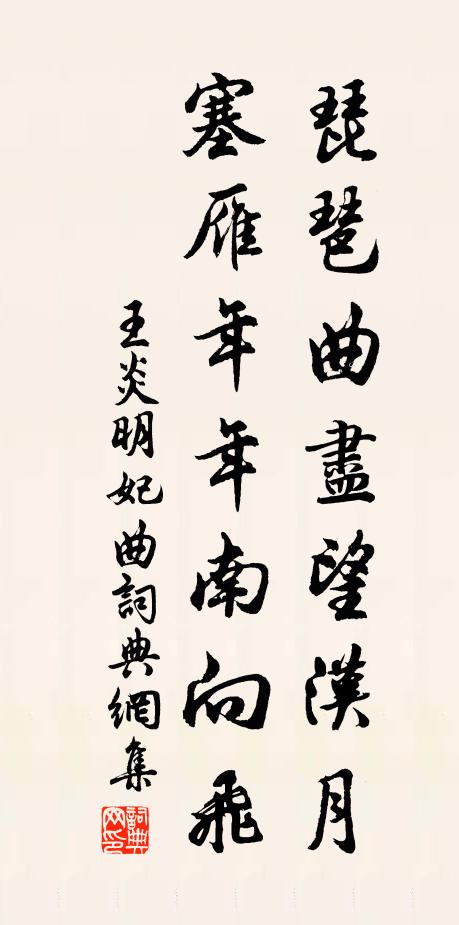 琵琶曲盡望漢月
塞雁年年南向飛
王炎明妃曲詞典網集
詞典網印